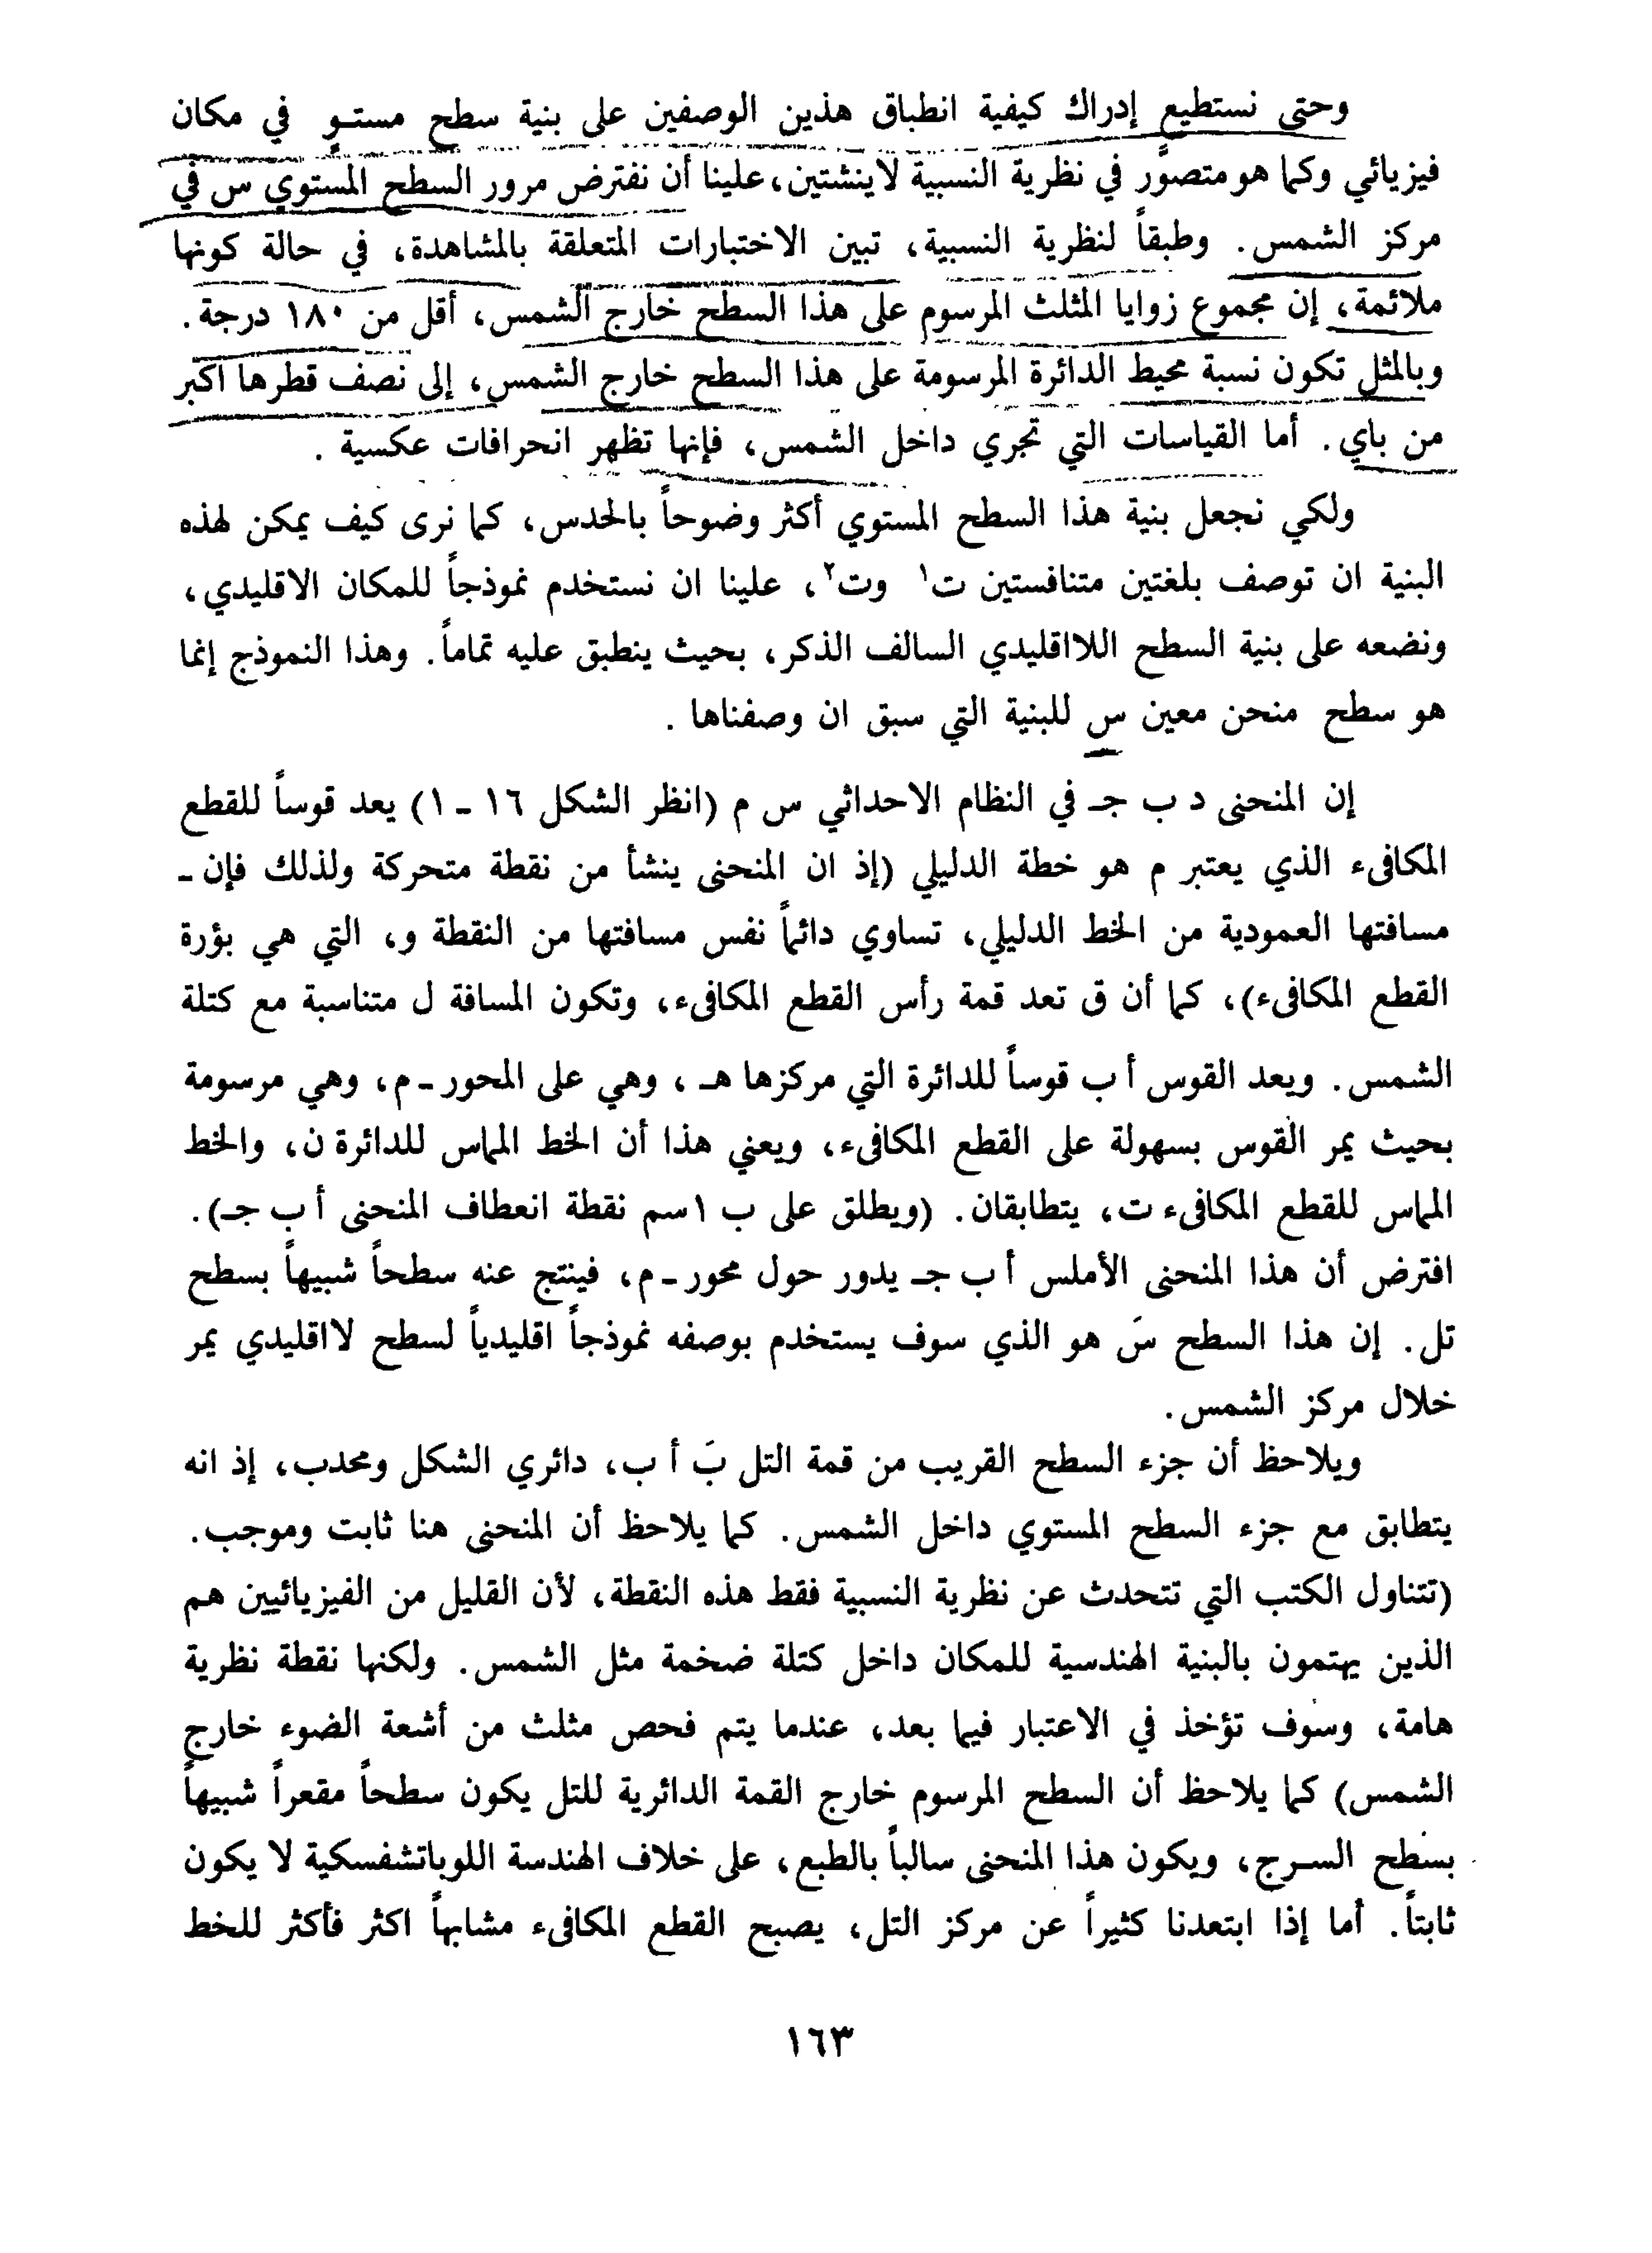 وحتى نستطيع إدراك كيفية انطباق هذين الوصفين على بنية سطح مستوٍ في مكان
فيزيائي وكما هو متصوَّر في نظرية النسبية لاينشتين، علينا أن نفترض مرور السطح المستوي س في
مركز الشمس. وطبقاً لنظرية النسبية، تبين الاختبارات المتعلقة بالمشاهدة، في حالة كونها
ملائمة، إن مجموع زوايا المثلث المرسوم على هذا السطح خارج الشمس، أقل من ١٨٠ درجة.
وبالمثل تكون نسبة محيط الدائرة المرسومة على هذا السطح خارج الشمس، إلى نصف قطرها اكبر
من باي. أما القياسات التي تجري داخل الشمس، فإنها تظهر انحرافات عكسية .
ولكي نجعل بنية هذا السطح المستوي أكثر وضوحاً بالحدس، كما نرى كيف يمكن لهذه
البنية ان توصف بلغتين متنافستين ت١ وت٢، علينا ان نستخدم نموذجاً للمكان الاقليدي،
ونضعه على بنية السطح اللااقليدي السالف الذكر، بحيث ينطبق عليه تماماً. وهذا النموذج إنما
هو سطح منحن معين س للبنية التي سبق ان وصفناها .
إن المنحنى د ب جـ في النظام الاحداثي س م (انظر الشكل ١٦ ـ ١) يعد قوساً للقطع
المكافىء الذي يعتبر م هو خطة الدليلي (إذ ان المنحنى ينشأ من نقطة متحركة ولذلك فإن ـ
مسافتها العمودية من الخط الدليلي، تساوي دائماً نفس مسافتها من النقطة و، التي هي بؤرة
القطع المكافىء)، كما أن ق تعد قمة رأس القطع المكافىء، وتكون المسافة ل متناسبة مع كتلة
الشمس. ويعد القوس أ ب قوساً للدائرة التي مركزها هـ ، وهي على المحور ـ م، وهي مرسومة
بحيث يمر القوس بسهولة على القطع المكافىء، ويعني هذا أن الخط المماس للدائرة ن، والخط
المماس للقطع المكافىء ت، يتطابقان. (ويطلق على ب ١سم نقطة انعطاف المنحنى أ ب جـ).
افترض أن هذا المنحنى الأملس أ ب جـ يدور حول محور ـ م، فينتج عنه سطحاً شبيهاً بسطح
تل. إن هذا السطح سَ هو الذي سوف يستخدم بوصفه نموذجاً اقليدياً لسطح لااقليدي يمر
خلال مركز الشمس.
ويلاحظ أن جزء السطح القريب من قمة التل بَ أ ب، دائري الشكل ومحدب، إذ انه
يتطابق مع جزء السطح المستوي داخل الشمس. كما يلاحظ أن المنحنى هنا ثابت وموجب.
(تتناول الكتب التي تتحدث عن نظرية النسبية فقط هذه النقطة، لأن القليل من الفيزيائيين هم
الذين يهتمون بالبنية الهندسية للمكان داخل كتلة ضخمة مثل الشمس. ولكنها نقطة نظرية
هامة، وسوف تؤخذ في الاعتبار فيما بعد، عندما يتم فحص مثلث من أشعة الضوء خارج
الشمس) كما يلاحظ أن السطح المرسوم خارج القمة الدائرية للتل يكون سطحاً مقعراً شبيهاً
بسطح السرج، ويكون هذا المنحنى سالباً بالطبع، على خلاف الهندسة اللوباتشفسكية لا يكون
ثابتاً. أما إذا ابتعدنا كثيراً عن مركز التل، يصبح القطع المكافىء مشابهاً اكثر فأكثر للخط
١٦٣